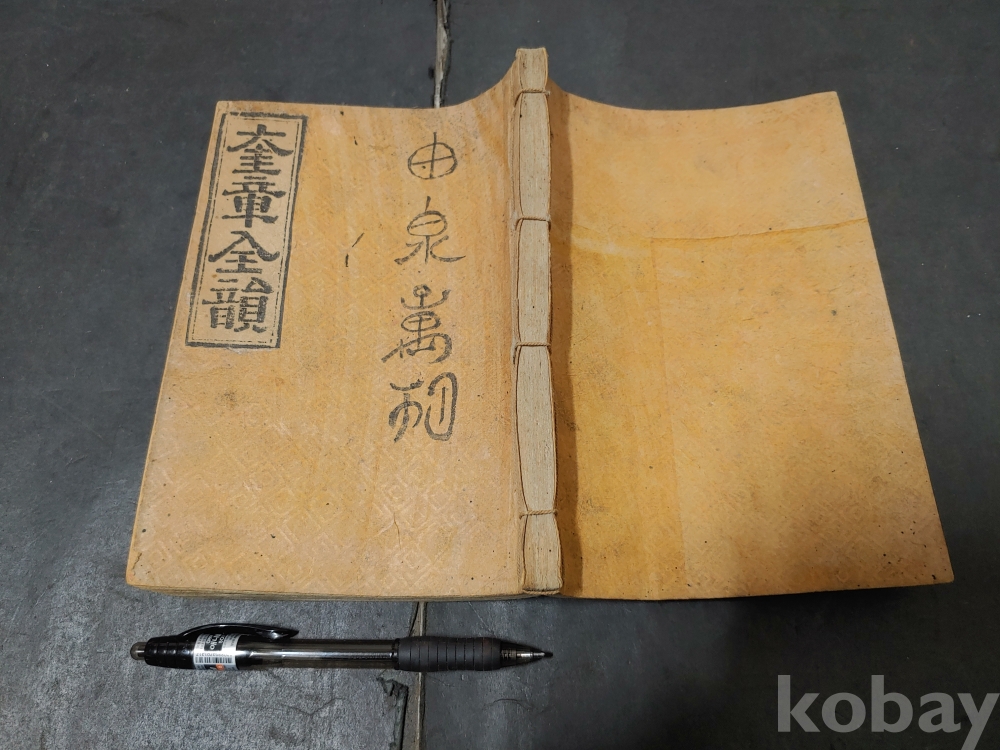 奎章全韻
由泉萬
kobay